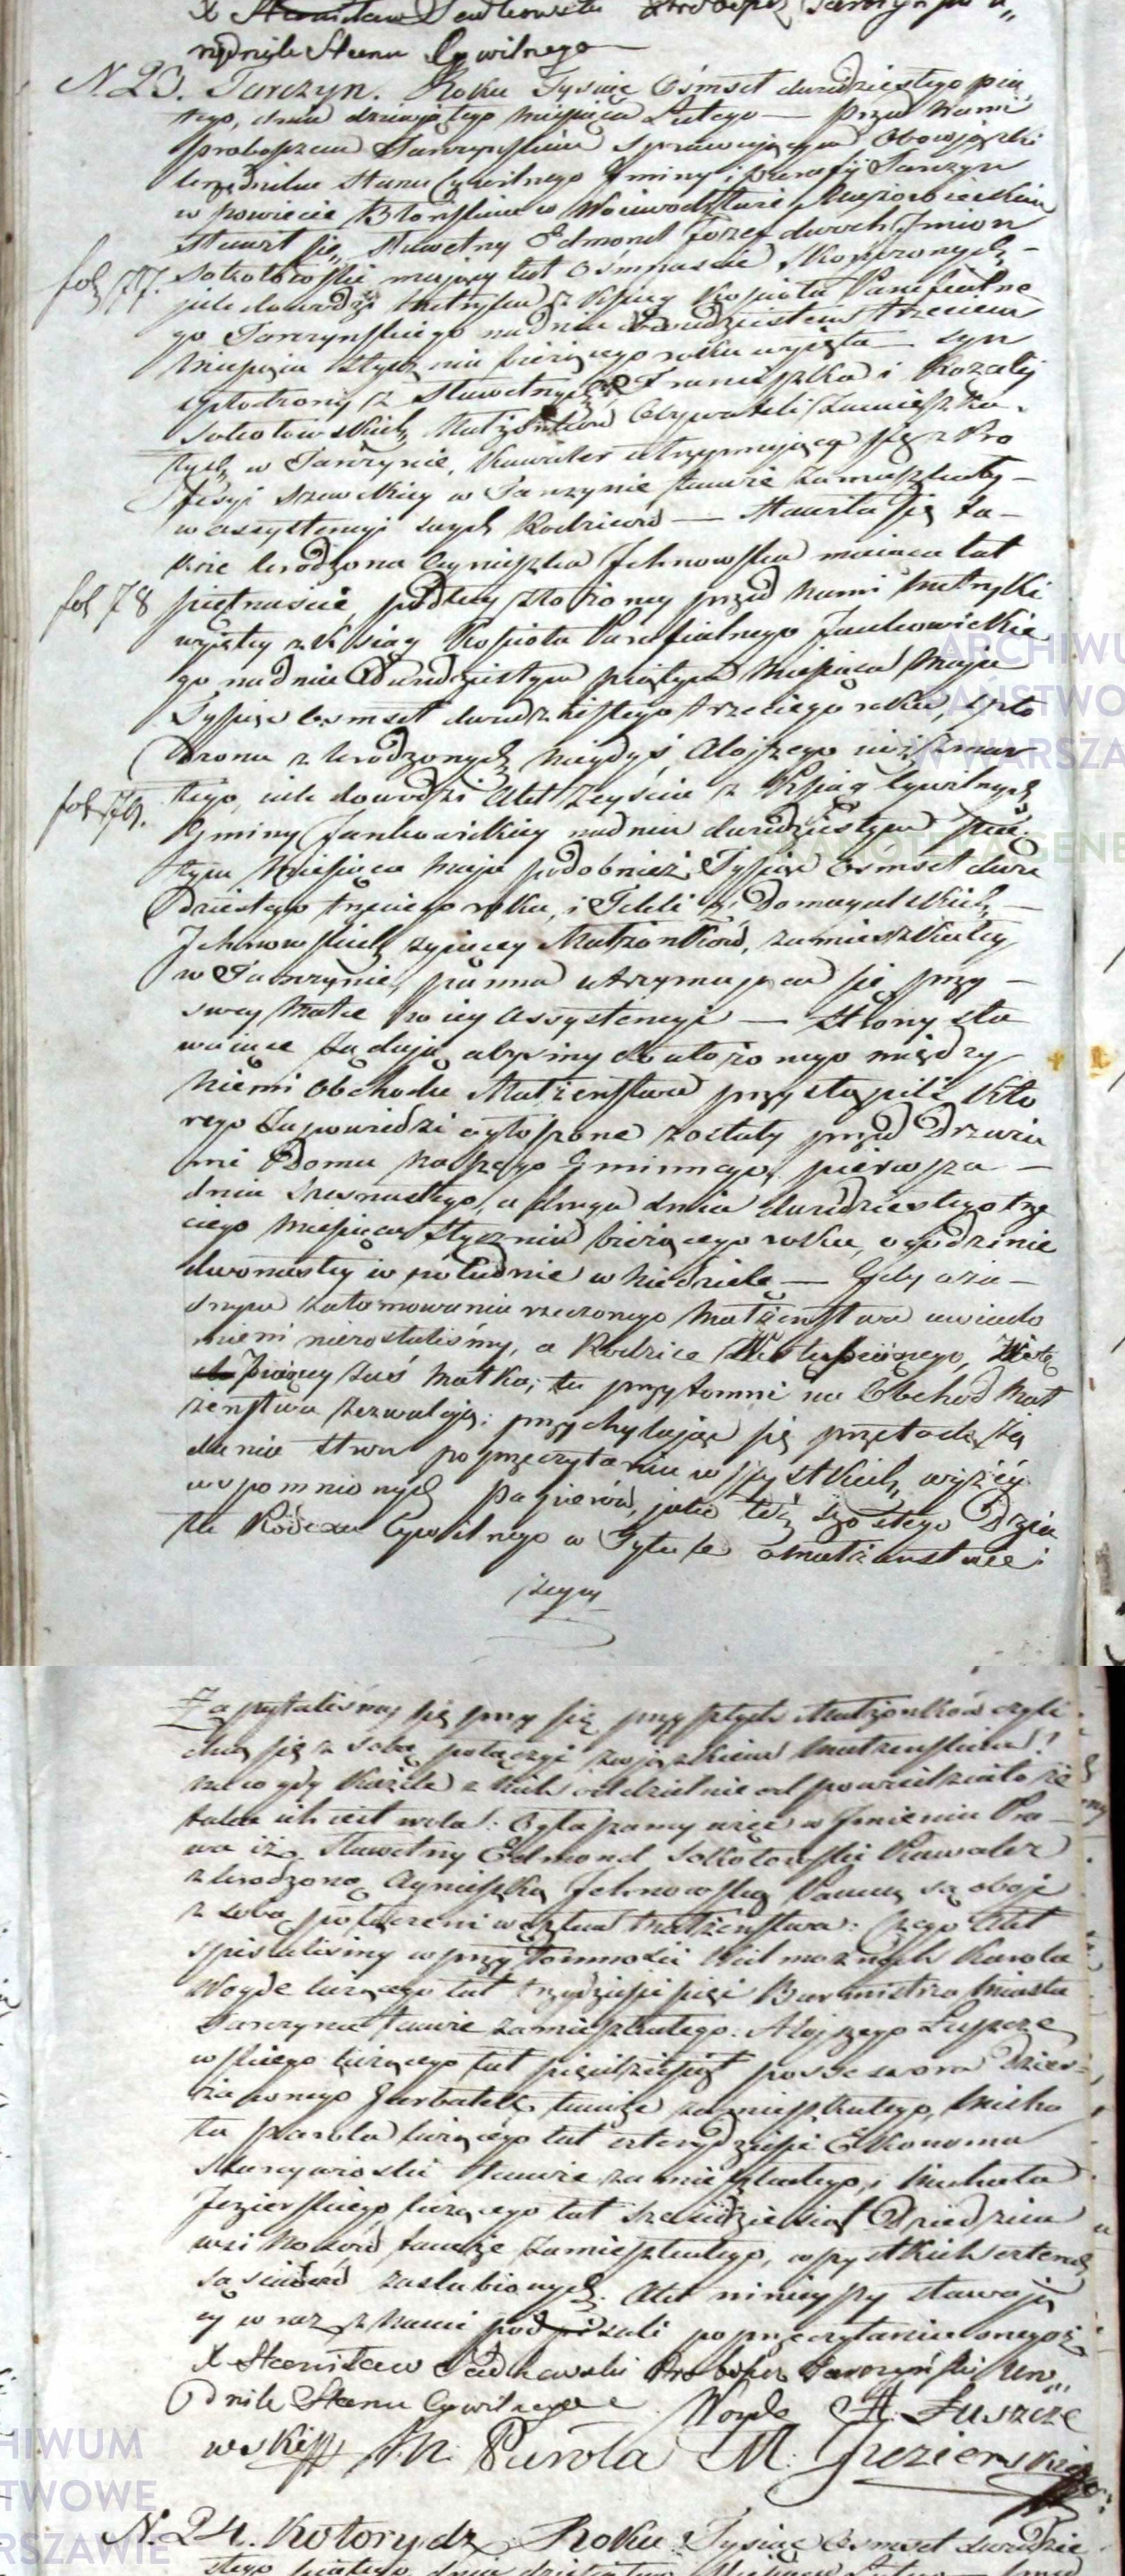 X Stanisław Sadkowski Proboszcz Tarczyński U„
rzędnik Stanu Cywilnego
N. 23. Tarczyn. Roku Tysiąc Ośmset dwudziestego pią
tego, dnia dziewiątego Miesiąca Lutego — Przed Nami
Proboszczem Tarczyńskim Sprawującym Obowiązki
Urzędnika Stanu Cywilnego Gminy i Parafij Tarczyn
w Powiecie Błońskim w Woiewództwie Mazowieckim
stawił się, Sławetny Edmond Jozef dwoch Jmion
fol 77. Sokołowski maiący lat Ośmnaście skończonych —
jak dowodzi Metryka z Xsiąg Kościoła Parafialne
go Tarczyńskiego na dniu dwudziestem trzeciem
Miesiąca Stycznia bieżącego roku wyjęta — syn
spłodzony z Sławetnych Franciszka i Rozalij
Sokołowskich Małżonków Obywateli Zamieszka-
łych w Tarczynie, Kawaler utrzymuiący się z Pro
fesyi szewckiey w Tarczynie tamże zamieszkały —
w assystencyi swych Rodziców — Stawiła się ta-
kże Urodzona Agnieszka Jchnowska maiąca lat
fol 78 piętnaście, podług złożoney przed Nami Metryki
wyjętey z Xsiąg Kościoła Parafialnego Jankowickie
go na dniu Dwudziestym piątym Miesiąca Maja
Tysiąc Osmset dwudziestego trzeciego roku, spło
dzona z Urodzonych niegdyś Aloizego iuż zmar
fol 79. łego, iak dowodzi Akt Zeyścia z Xsiąg Cywilnych
Gminy Jankowickiey na dniu dwudziestym pią
tym Miesiąca Maja podobnież Tysiąc Osmset dwu
dziestego trzeciego roku, i Tekli z Domagalskich —
Jchnowskich żyiącey Małżonków, zamieszkałey
w Tarczynie, panna utrzymuiąca się przy —
swey Matce w iey Assystencyi — Strony sta
waiące żądaią abyśmy do ułożonego między
niemi Obchodu Małżeństwa przystąpili Któ
rego Zapowiedzi ogłoszone zostały przed Drzwia
mi Domu naszego Gminnego, pierwsza —
dnia szesnastego, a druga dnia dwudziestego trze
ciego Miesiąca Stycznia bieżącego roku, o godzinie
dwunastey w południe w Niedzielę — Gdy o ża-
dnym zatamowaniu rzeczonego Małżeństwa uwiado
mieni niezostaliśmy, a Rodzice Wstępuiącego,
zaś Matka, tu przytomni na Obchód Mał
żeństwa zezwalaią; przychylaiąc się przeto do żą
dania stron po przeczytaniu wszystkich wyżéy
wspomnionych Papierów, jako też szóstego Dzia
łu Kodexu Cywilnego w Tytule o Małżeństwie;
Zapytaliśmy się przyszłych Małżonków czyli
chcą się z sobą połączyć związkiem Małżeństwa?
na co gdy każde z nich oddzielnie odpowiedziało, że
taka ich iest wola: Ogłaszamy więc w Jmieniu Pra-
wa iż Sławetny Edmond Sokołowski Kawaler
z Urodzoną Agnieszką Jchnowską Panną są oboje
z sobą połączeni węzłem Małżeństwa: Czego Akt
spisaliśmy w przytomności Wielmożnych Karola
Woyde liczącego lat trzydzieści pięć Burmistrza Miasta
Tarczyna tamże zamieszkałego. Aloizego Łuszcze
wskiego liczącego lat pięćdziesiąt possessora Dzier-
żawnego tamże zamieszkałego, Micha
ła Parola liczącego lat czterydzieści Ekonoma
tamże zamieszkałego, i Michała
Jezierskiego liczącego lat sześćdziesiąt Dziedzica
wsi tamże zamieszkałego, wszystkich czterech
sąsiadów zaslubionych. Akt ninieyszy stawają
cy wraz z Nami podpisali po przeczytaniu onegoż
X Stanisław Sadkowski Proboszcz Tarczyński Urzę„
dnik Stanu Cywilnego Woyde A. Łuszcze
wski M. Parola M. Jezierski
N. 24. Kotorydz Roku Tysiąc Osmset dwudzie
stego piątego dnia Miesiąca Lutego